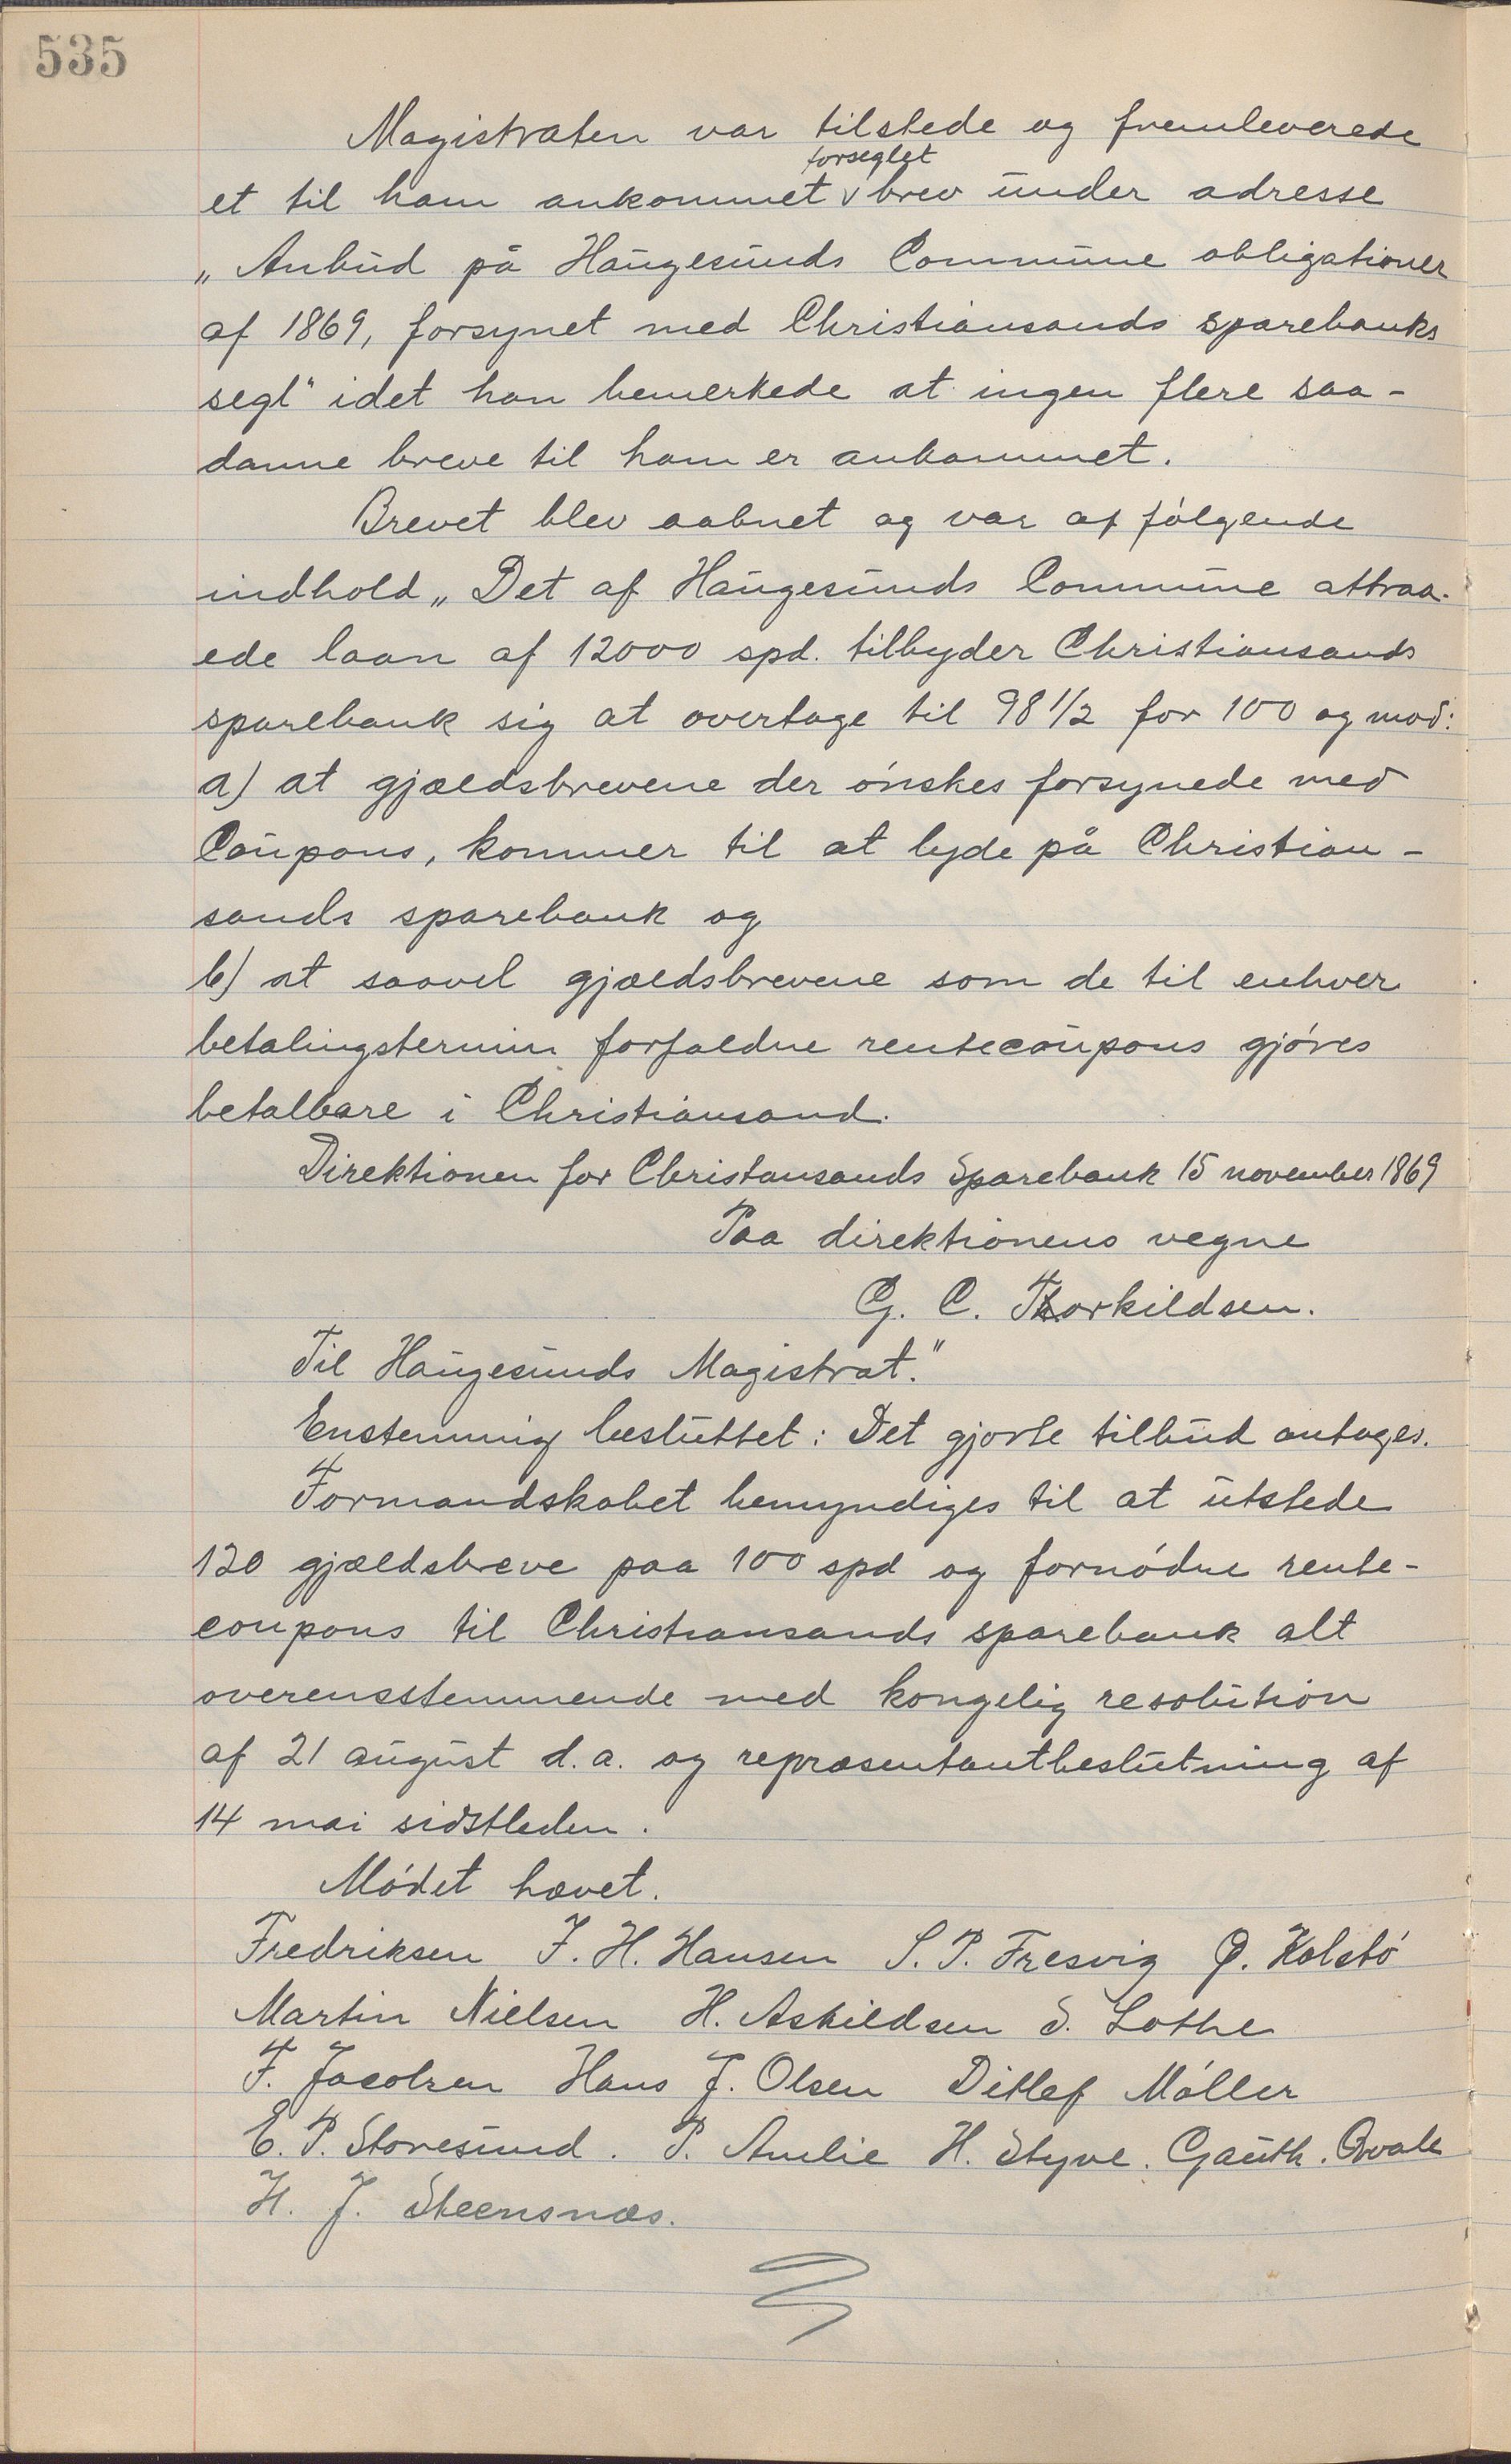 535
Magistraten var tilstede og fremleverede
forseglet
et til ham ankommet v brev under adresse
„Anbud på Haugesunds Commune obligationer
af 1869, forsynet med Christiansands sparebanks
segl" idet han bemerkede at ingen flere saa-
danne breve til ham er ankommet.
Brevet blev aabnet og var af følgende
indhold „Det af Haugesunds Commune attraa-
ede laan af 12000 spd. tilbyder Christiansands
sparebank sig at overtage til 98 1/2 for 100 og mod:
a) at gjældsbrevene der ønskes forsynede med
Coupons, kommer til at lyde på Christian-
sands sparebank og
b) at saavel gjældsbrevene som de til enhver
betalingstermin forfaldne rentecoupons gjøres
betalbare i Christiansand.
Direktionen for Christansands Sparebank 15 november 1869
Paa direktionens vegne
G. C. Thorkildsen.
Til Haugesunds Magistrat."
Enstemmig besluttet: Det gjorte tilbud antages.
Formandskabet bemyndiges til at utstede
120 gjældsbreve paa 100 spd og fornødne rente-
coupons til Christiansands sparebank alt
overensstemmende med kongelig resolution
af 21 august d.a. og repræsentantbeslutning af
14 mai sidstleden.
Mødet hævet.
Fredriksen J. H. Hansen S. P. Fresvig Ø. Kolstø
Martin Nielsen H. Askildsen S. Lothe
F. Jacobsen Hans J. Olsen Ditlef Møller
E. P. Storesund. P. Amlie H. Styve. Gauth. Qvale
H. J. Steensnæs.